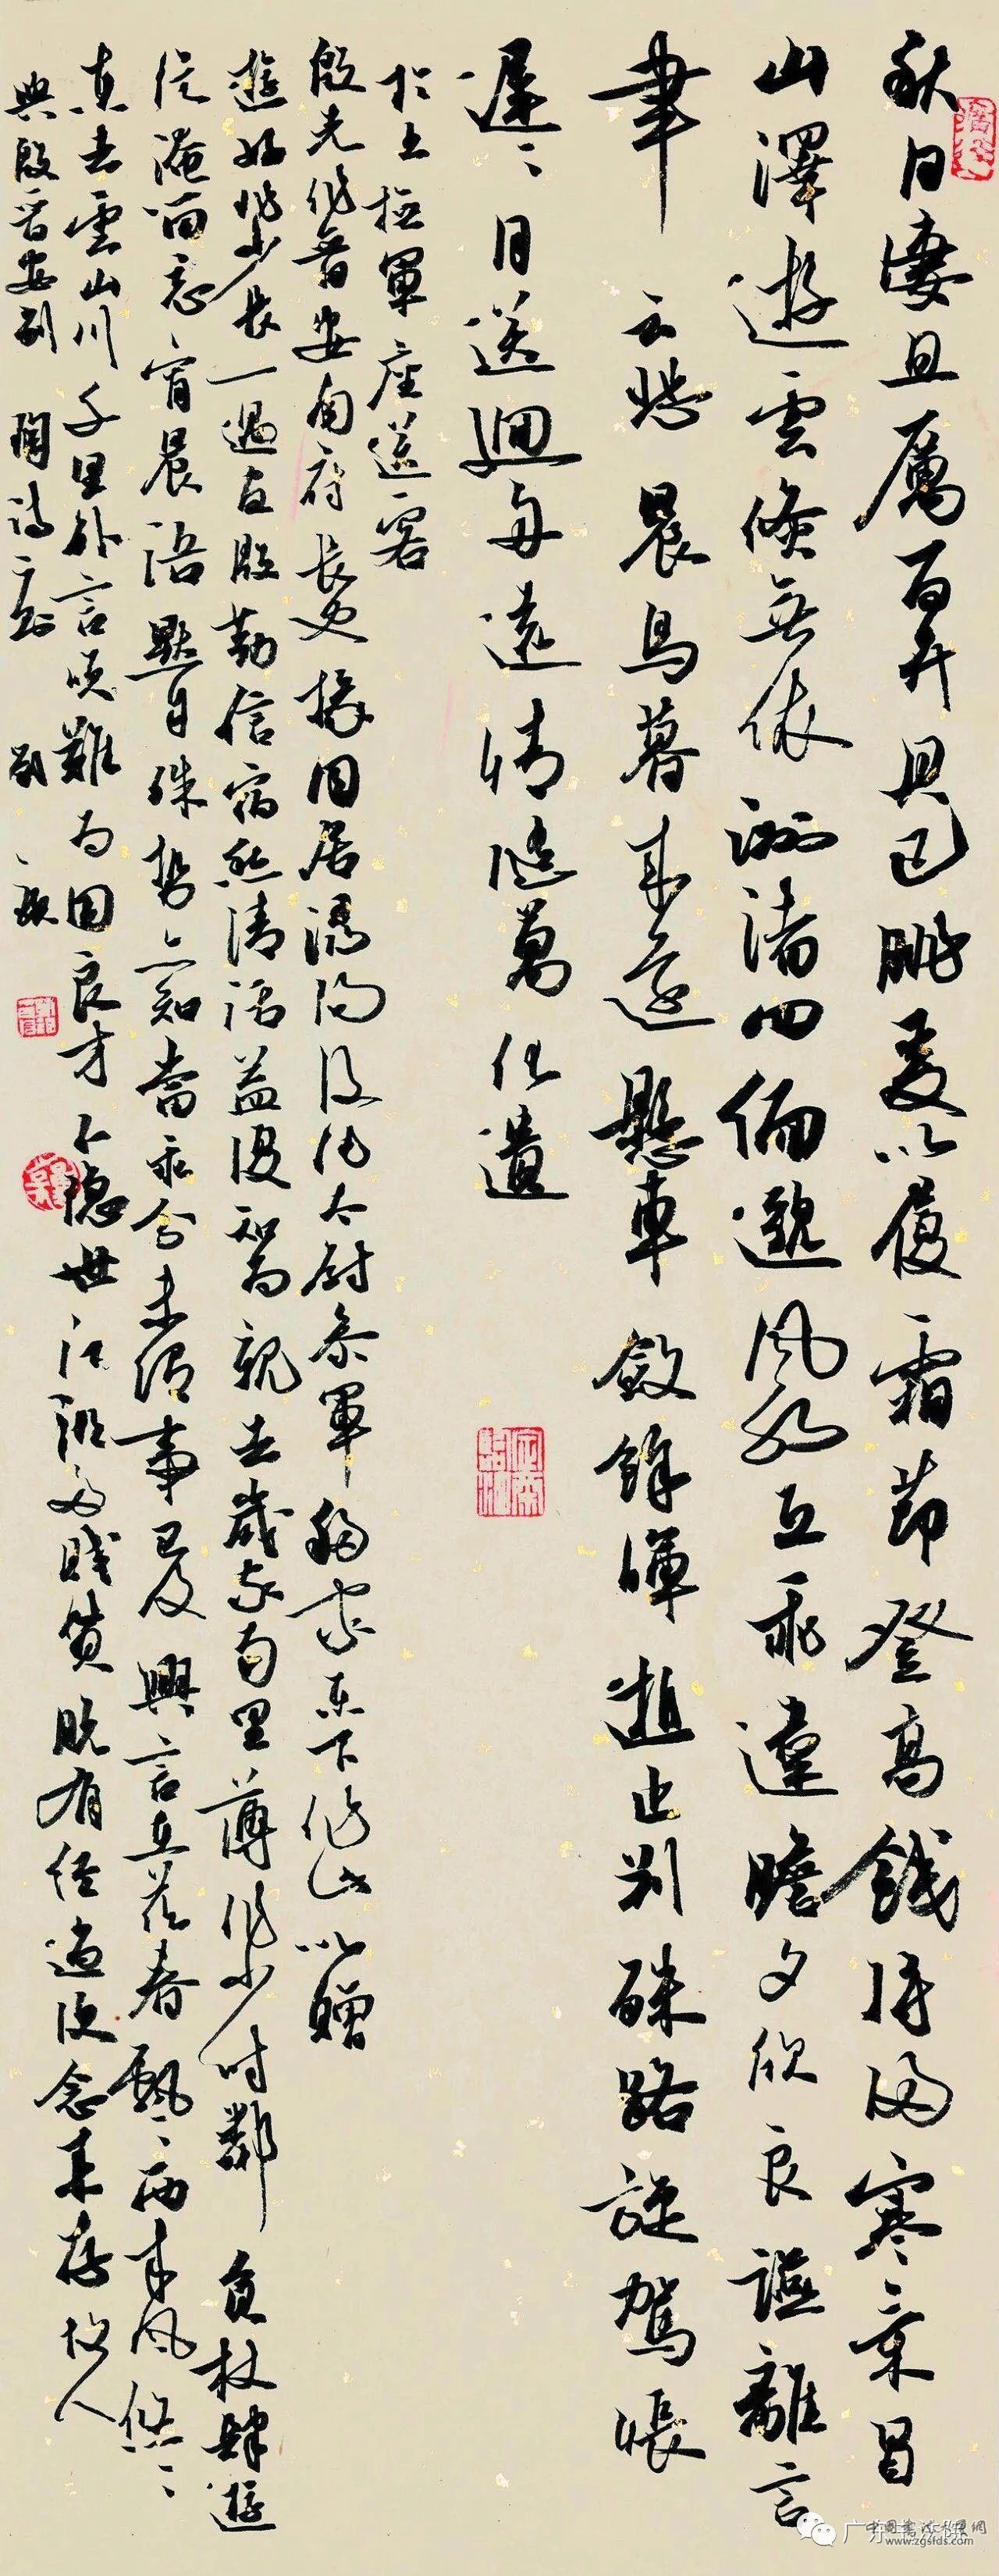 秋日淒且厲百卉具已腓爰以履霜節登高餞將歸寒氣冒
山澤遊雲倏無依洲渚四緬邈風水互乖違瞻夕欣良讌離言
聿云悲晨鳥暮來還懸車斂餘暉逝止判殊路旋駕悵
遲〻目送迴舟遠情隨萬化遺
於王撫軍座送客
殷先作晉安南府長史掾因居潯陽後作太尉參軍移家東下作此以贈
遊好非少長一遇盡殷勤信宿酬清話益復知為親去歲家南里薄作少時鄰負杖肆遊
從淹留忘宵晨語默自殊勢亦知當乖分未謂事已及興言在茲春飄〻西來風悠〻
東去雲山川千里外言笑難為因良才不隱世江湖多賤貧脫有經過便念來存故人
與殷晉安別 陶詩二首
中國書法展賽網
www.zgsfds.com